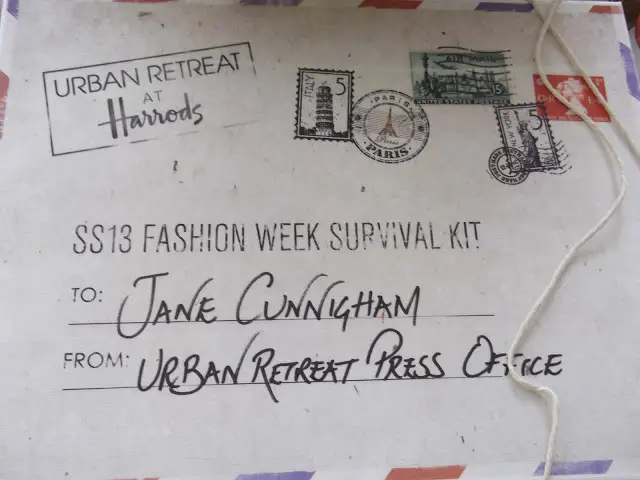 URBAN RETREAT
AT
Harrods
ITALY
5
PARIS
Paris
PARIS
AIR MAIL
15
UNITED STATES POSTAGE
NEW YORK
5
SS13 FASHION WEEK SURVIVAL KIT
TO: JANE CUNNIGHAM
FROM: URBAN RETREAT PRESS OFFICE